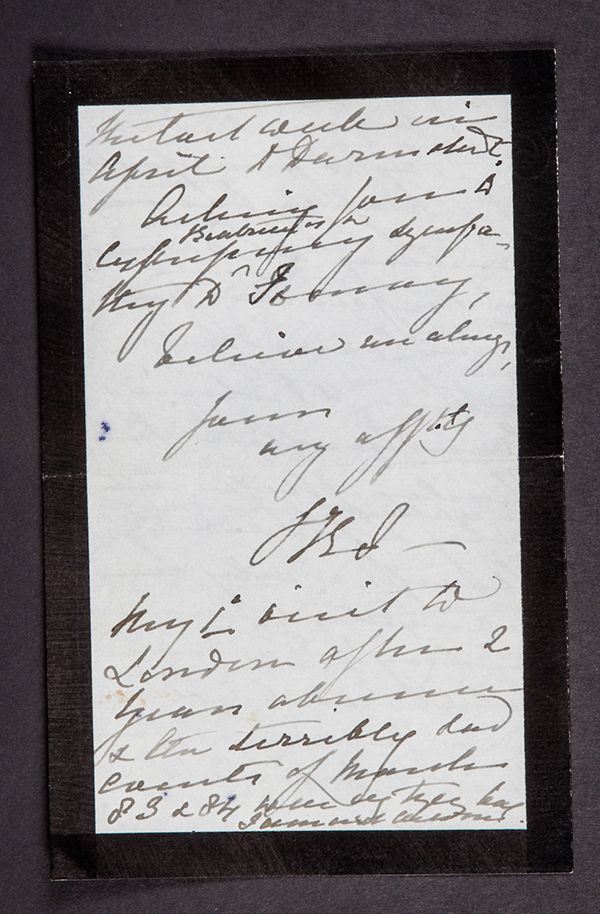 the last week in
April to Darmstadt.
Asking you to
Beatrice's &
express my sympa-
thy to Fanny,
believe me always,
Yours
very affly
VRI
My 1st visit to
London after 2
years absence
& the terribly sad
events of March
83 & 84 was very trying